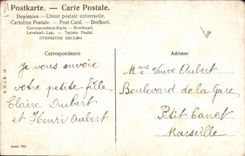 Postkarte. — Carte Postale.
Dopisnice. - Union postale universelle.
Cartolina Postale. — Post Card — Brefkort.
Correspondenz-Karte — Briefkaart.
Levelező-Lap. — Tarjeta Postal
ОТКРЫТОЕ ПИСЬМО.
Correspondance
Je vous envoie
votre petite-fille
Claire Aubert
et Henri Aubert
Mme Veuve Aubert
Boulevard de la Gare
Petit Canet
Marseille